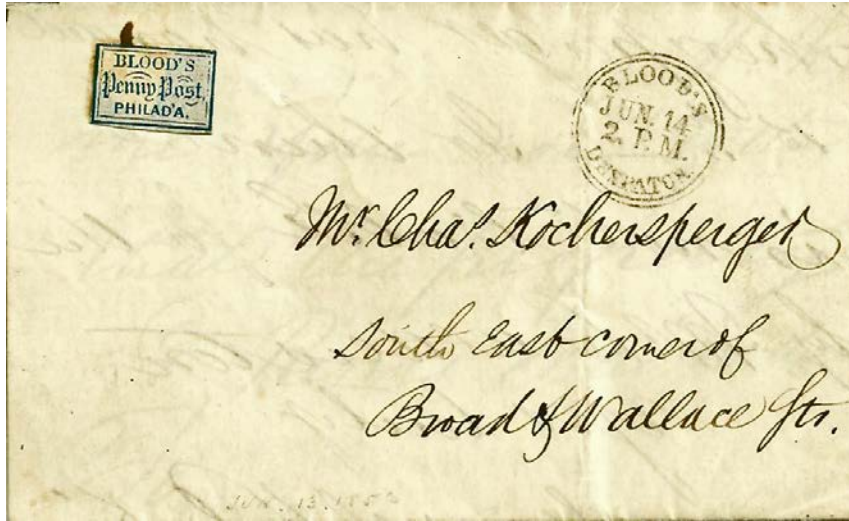 BLOOD'S
Penny Post,
PHILAD'A.
BLOOD'S
JUN. 14
2 P.M.
DESPATCH.
Mr. Chas. Kochersperger
South East corner of
Broad & Wallace Sts.
JUN. 13.